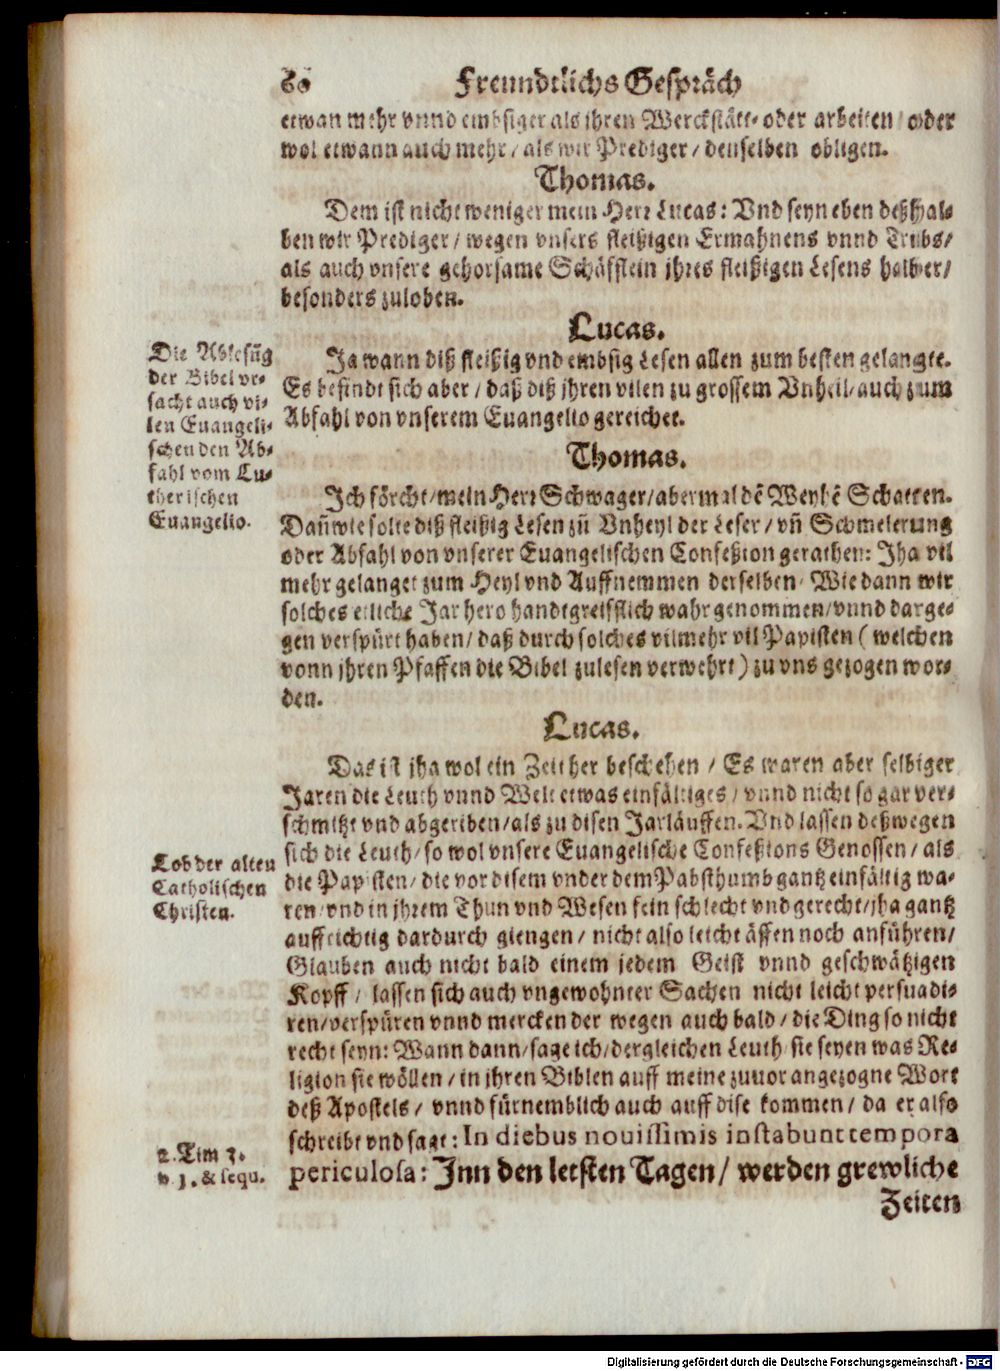 60 Freundtlichs Gespräch
etwan mehr vnnd embsiger als jhren Werckstätt- oder arbeiten / oder
wol etwann auch mehr / als wir Prediger / denselben obligen.
Thomas.
Dem ist nicht weniger mein Herr Lucas: Vnd seyn eben deßhal-
ben wir Prediger / wegen vnsers fleißigen Ermahnens vnnd Tribs /
als auch vnsere gehorsame Schäfflein jhres fleißigen Lesens halber /
besonders zuloben.
Lucas.
Die Ablesũg
der Bibel vr-
sacht auch vi-
len Euangeli-
schen den Ab-
fahl vom Lu-
therischen
Euangelio.
Ja wann diß fleißig vnd embsig Lesen allen zum besten gelangte.
Es befindt sich aber / daß diß jhren vilen zu grossem Vnheil / auch zum
Abfahl von vnserem Euangelio gereichet.
Thomas.
Ich förcht / mein Herr Schwager / abermal dẽ Weyhẽ Schatten.
Dañ wie solte diß fleißig Lesen zũ Vnheyl der Leser / vñ Schmelerung
oder Abfahl von vnserer Euangelischen Confeßion gerathen: Jha vil
mehr gelanget zum Heyl vnd Auffnemmen derselben / Wie dann wir
solches etliche Jar hero handtgreifflich wahrgenommen / vnnd darge-
gen verspürt haben / daß durch solches vilmehr vil Papisten ( welchen
vonn jhren Pfaffen die Bibel zulesen verwehrt ) zu vns gezogen wor-
den.
Lucas.
Das ist jha wol ein Zeit her beschehen / Es waren aber selbiger
Jaren die Leuth vnnd Welt etwas einfältiges / vnnd nicht so gar ver-
schmitzt vnd abgeriben / als zu disen Jarläuffen. Vnd lassen deßwegen
sich die Leuth / so wol vnsere Euangelische Confeßions Genossen / als
Lob der alten
Catholischen
Christen.
die Papisten / die vor disem vnder dem Pabsthumb gantz einfältig wa-
ren / vnd in jhrem Thun vnd Wesen fein schlecht vnd gerecht / jha gantz
auffrichtig dardurch giengen / nicht also leicht äffen noch anführen /
Glauben auch nicht bald einem jedem Geist vnnd geschwätzigen
Kopff / lassen sich auch vngewohnter Sachen nicht leicht persuadi-
ren / verspüren vnnd mercken der wegen auch bald / die Ding so nicht
recht seyn: Wann dann / sage ich / dergleichen Leuth / sie seyen was Re-
ligion sie wöllen / in jhren Biblen auff meine zuuor angezogne Wort
deß Apostels / vnnd fürnemblich auch auff dise kommen / da er also
schreibt vnd sagt: In diebus nouissimis instabunt tempora
2. Tim 3.
v 1. & sequ.
periculosa: Inn den letsten Tagen / werden grewliche
Zeiten
Digitalisierung gefördert durch die Deutsche Forschungsgemeinschaft - DFG